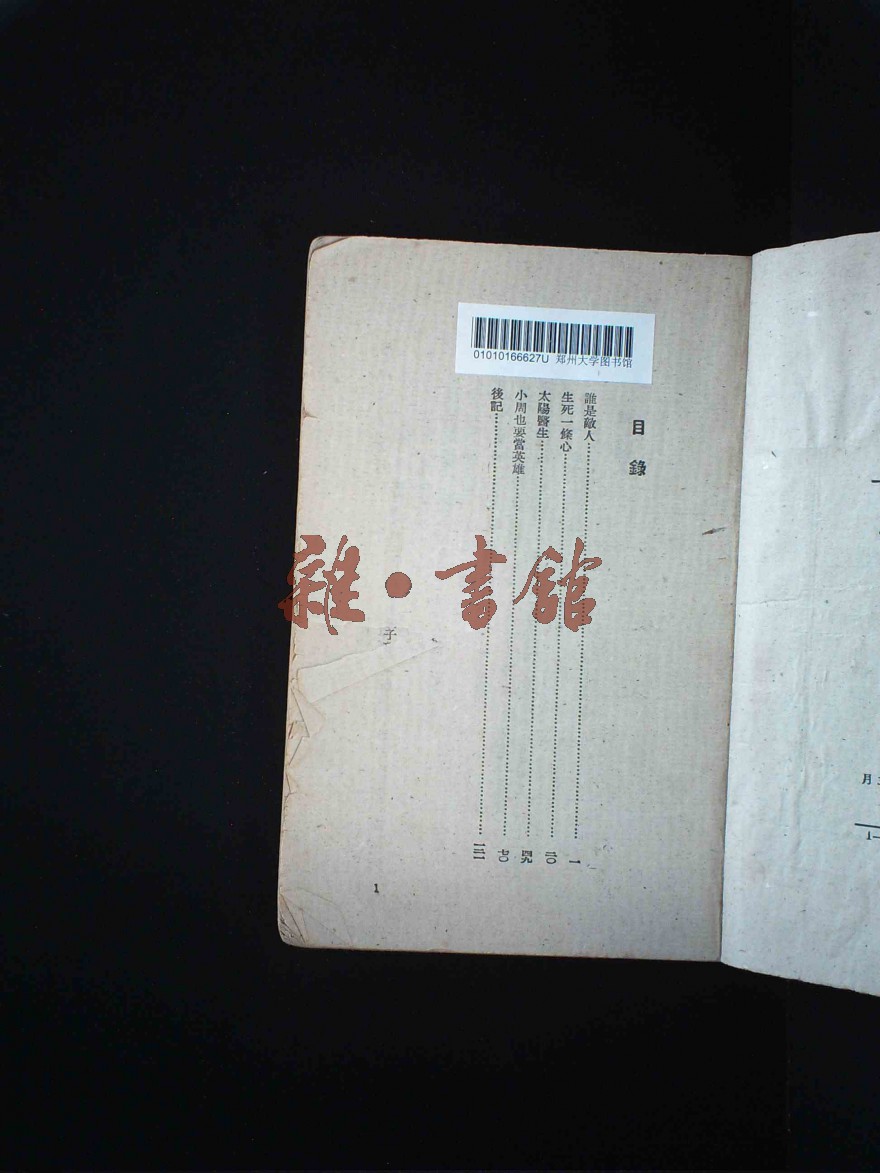 01010166627U 郑州大学图书馆
目錄
誰是敵人 一
生死一條心 二〇
太陽醫生 四九
小周也要當英雄 七〇
後記
雜·書館
子
1
月